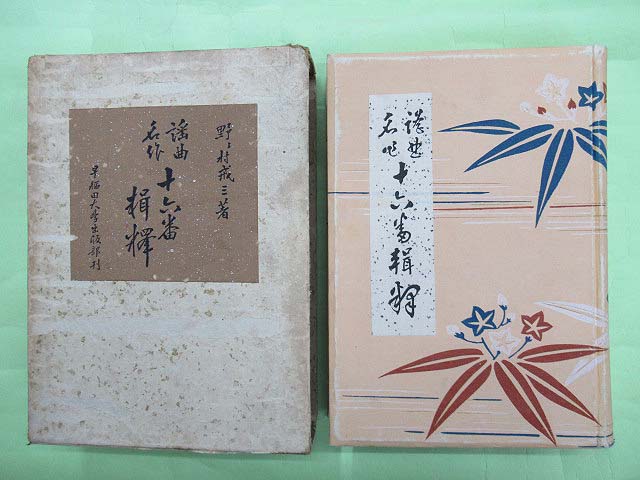 野々村戒三著
謡曲
名作
十六番
輯釋
早稲田大学出版部刊
謡曲
名作
十六番輯釋